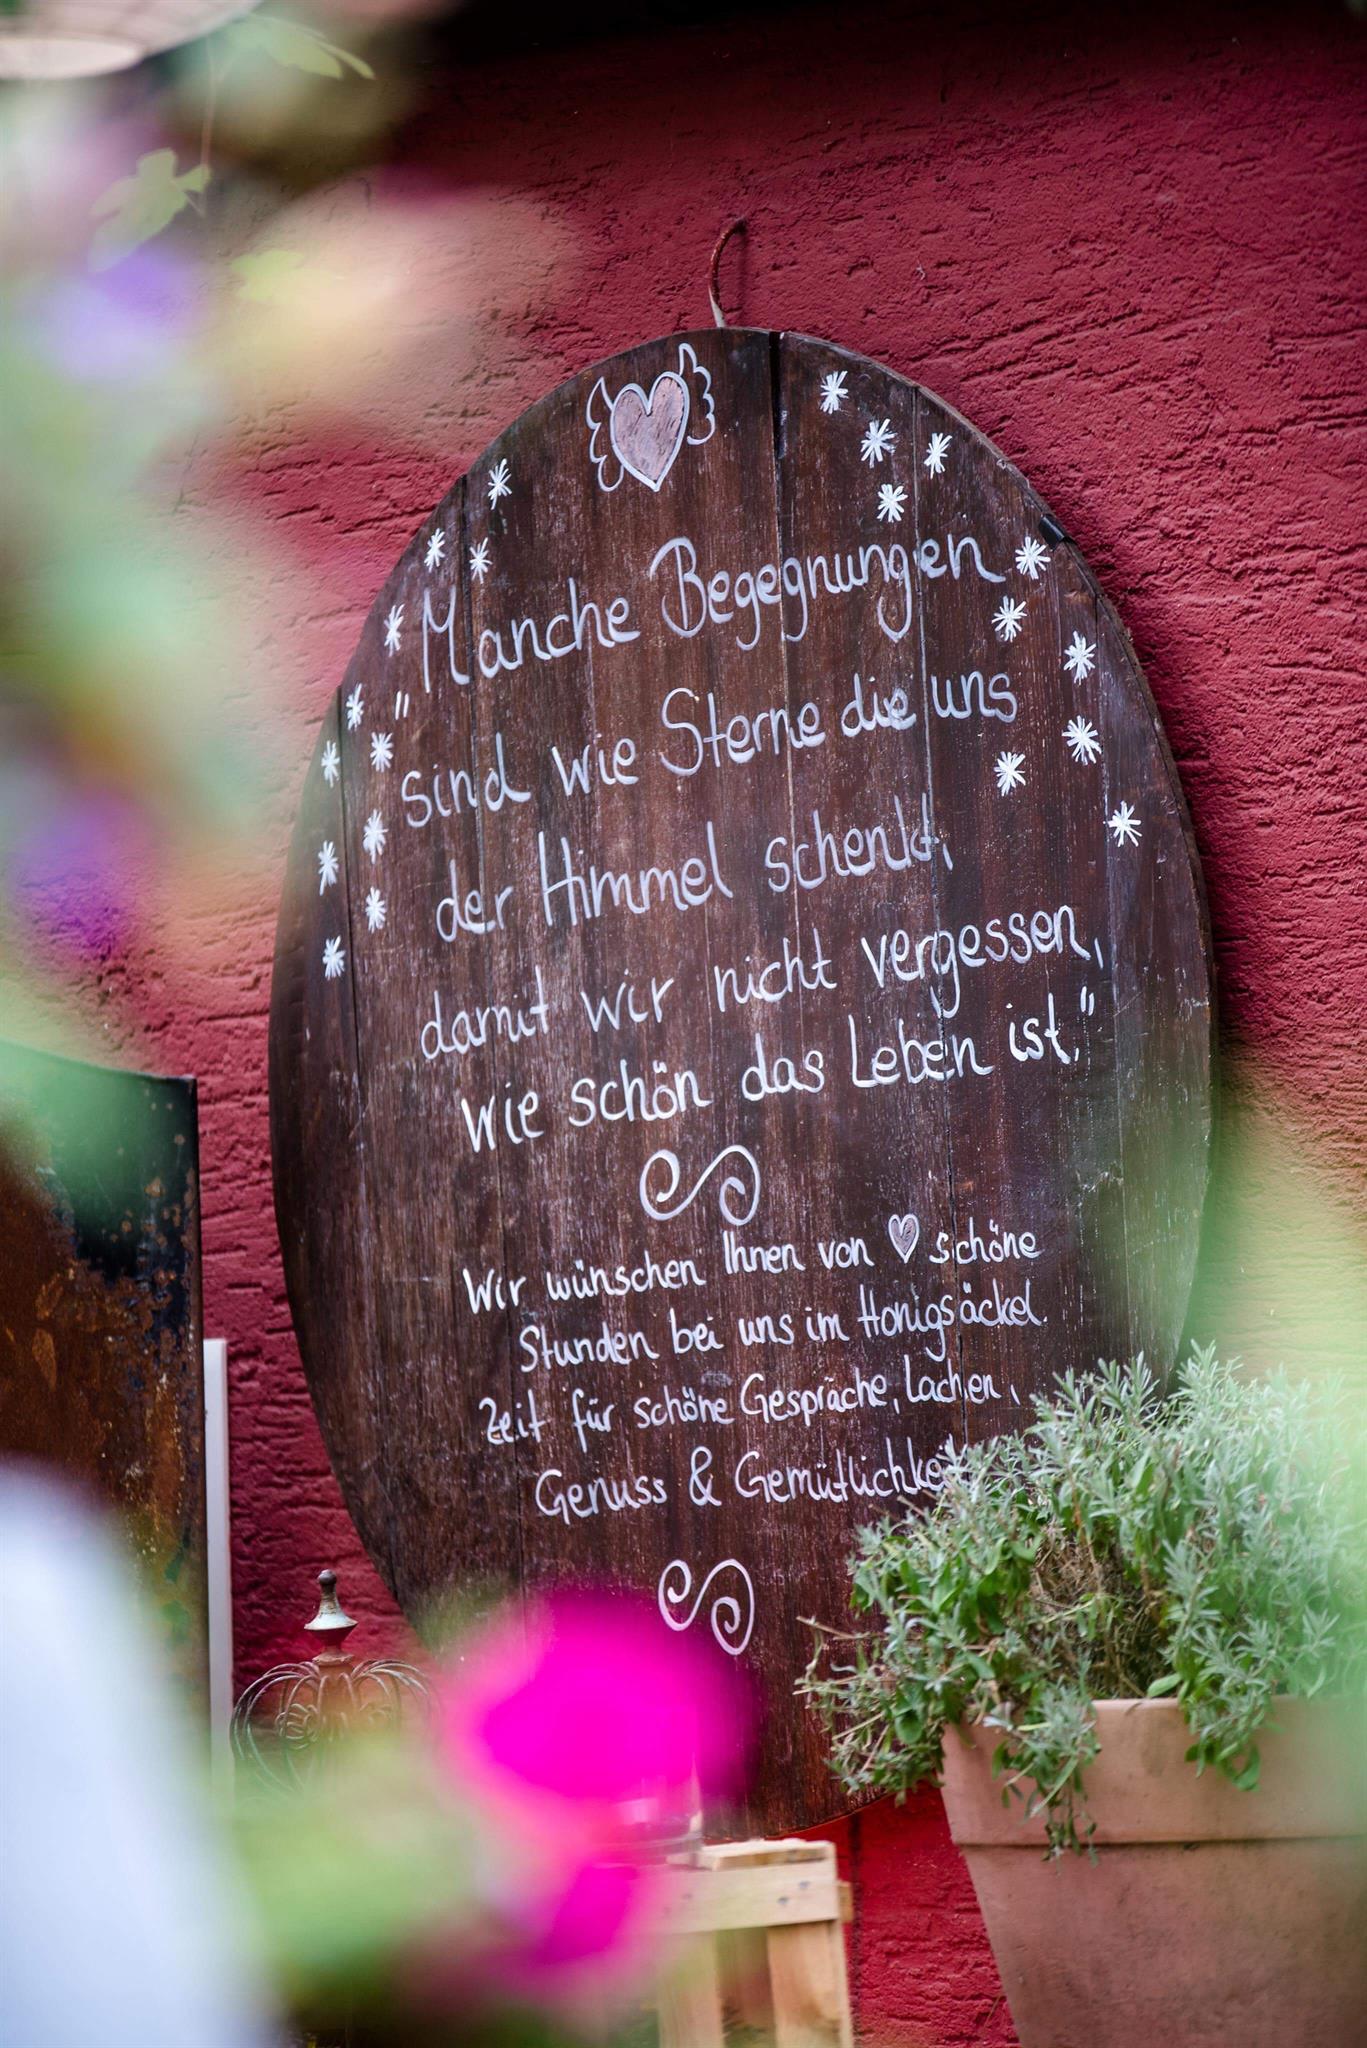 „Manche Begegnungen
sind wie Sterne die uns
der Himmel schenkt,
damit wir nicht vergessen,
wie schön das Leben ist."
Wir wünschen Ihnen von ♡ schöne
Stunden bei uns im Honigsäckel.
Zeit für schöne Gespräche, Lachen,
Genuss & Gemütlichkeit